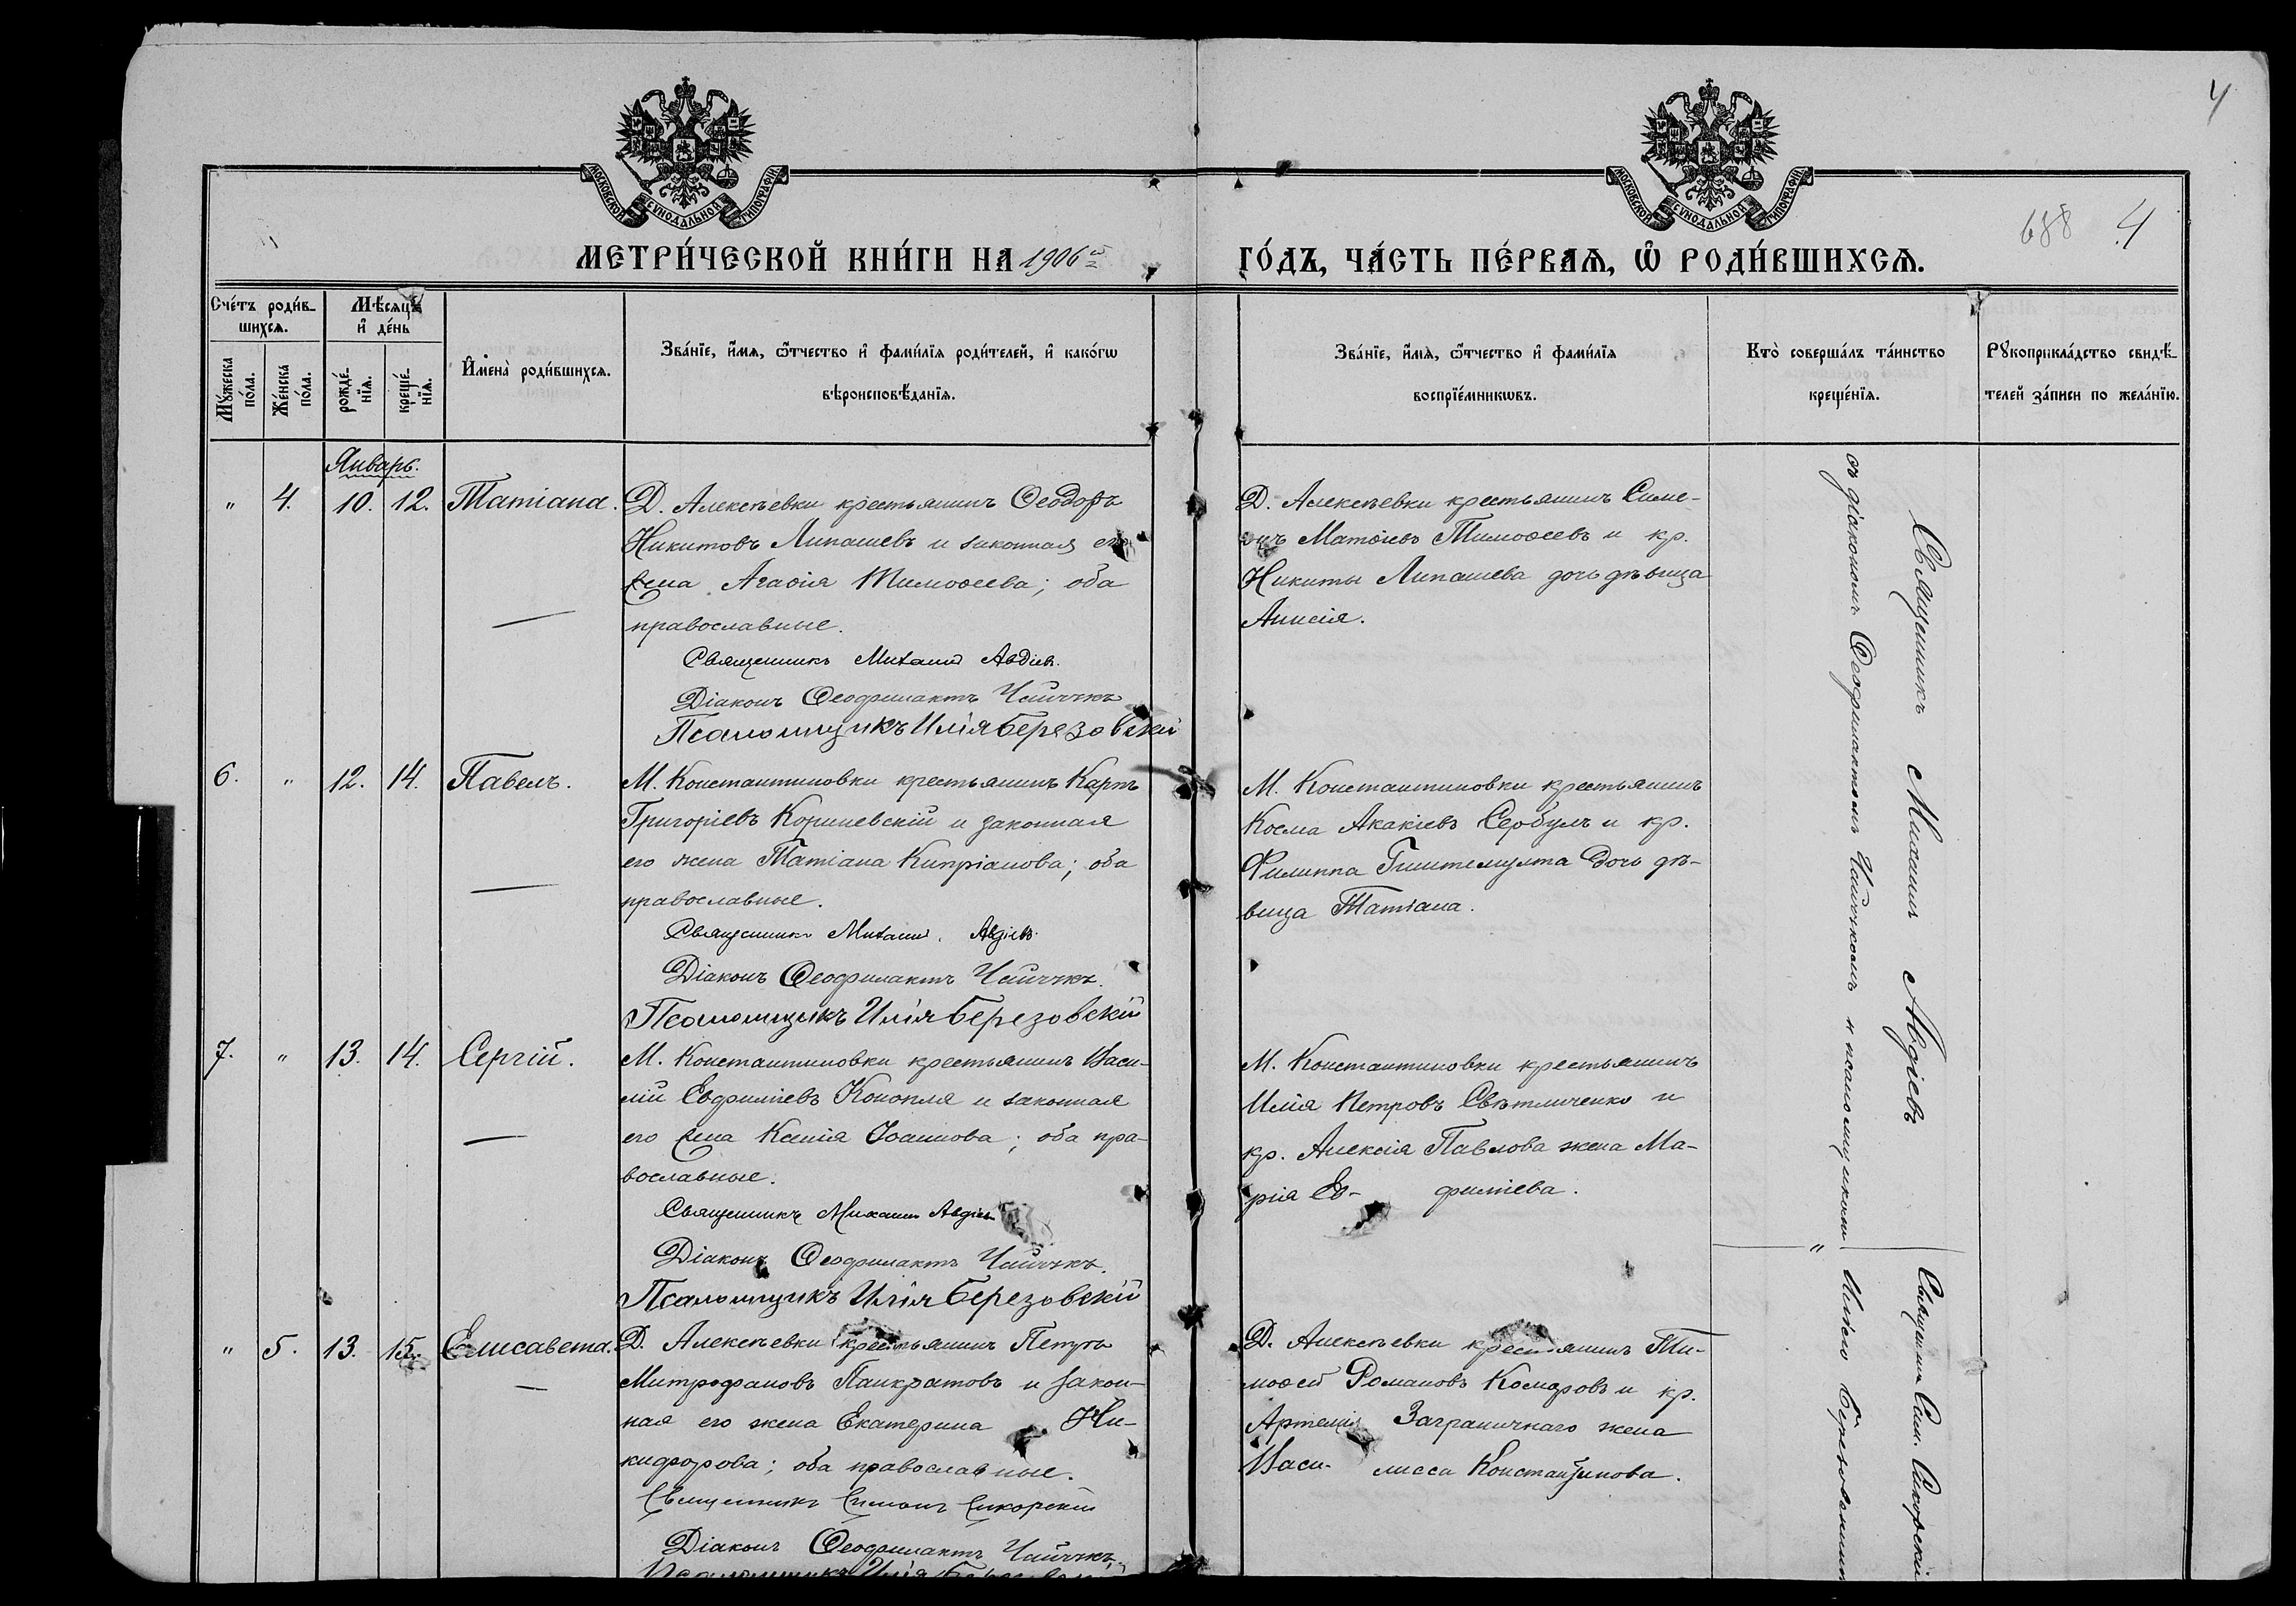 4
МОСКОВСКОЙ СѴНОДАЛЬНОЙ ТИПОГРАФІИ
МОСКОВСКОЙ СѴНОДАЛЬНОЙ ТИПОГРАФІИ
688 4
МЕТРИ́ЧЕСКОЙ КНИ́ГИ НА 1906й
ГО́ДЪ, ЧА́СТЬ ПЕ́РВАѦ, Ѡ РОДИ́ВШИХСѦ.
Сче́тъ роди́в-
шихсѧ.
Мꙋ́жеска по́ла.
Же́нска по́ла.
Мѣ́сѧцъ
и де́нь
рожде́-
нїѧ.
креще́-
нїѧ.
Имена̀ роди́вшихсѧ.
Зва́нїе, и́мѧ, ѻ́тчество и фамы́лїѧ роди́телей, и како́гѡ
вѣроисповѣ́данїѧ.
Зва́нїе, и́мѧ, ѻ́тчество и фами́лїѧ
воспрїе́мникѡвъ.
Кто̀ соверша́лъ та́инство
креще́нїѧ.
Рꙋкоприкла́дство свидѣ́-
телей за́писи по жела́нїю.
Январь.
„ 4. 10. 12. Татіана.
Д. Алексѣевки крестьянинъ Ѳеодоръ
Никитовъ Липашевъ и законная его
жена Агаѳія Тимоѳеева; оба
православные.
Священникъ Михаилъ Авдіевъ.
Діаконъ Ѳеофилактъ Чайчукъ
Псаломщикъ Илія Березовскій
Д. Алексѣевки крестьянинъ Симе-
онъ Матѳіевъ Тимоѳеевъ и кр.
Никиты Липашева дочь дѣвица
Анисія.
6. „ 12. 14. Павелъ.
М. Константиновки крестьянинъ Карпъ
Григоріевъ Коршевскій и законная
его жена Татіана Кипріанова; оба
православные.
Священникъ Михаилъ Авдіевъ.
Діаконъ Ѳеофилактъ Чайчукъ.
Псаломщикъ Илія Березовскій
М. Константиновки крестьянинъ
Косма Акакіевъ Сербулъ и кр.
Филиппа дочь дѣ-
вица Татіана.
7. „ 13. 14. Сергій.
М. Константиновки крестьянинъ Васи-
лій Евфиміевъ Конопля и законная
его жена Ксенія Іоаннова; оба пра-
вославные.
Священникъ Михаилъ Авдіевъ
Діаконъ Ѳеофилактъ Чайчукъ.
Псаломщикъ Илія Березовскій
М. Константиновки крестьянинъ
Илія Петровъ Свѣтличенко и
кр. Алексія Павлова жена Ма-
рія Ев- фиміева.
„ 5. 13. 15. Елисавета.
Д. Алексѣевки крестьянинъ Петръ
Митрофановъ Панкратовъ и закон-
ная его жена Екатерина Ни-
кифорова; оба православные.
Священникъ Симонъ Сикорскій
Діаконъ Ѳеофилактъ Чайчукъ.
Псаломщикъ Илія Березовскій
Д. Алексѣевки крестьянинъ Ти-
моѳей Романовъ Комаровъ и кр.
Артемія Заграничнаго жена
Васи- лисса Константинова.
Священникъ Михаилъ Авдіевъ
съ діакономъ Ѳеофилактомъ Чайчукомъ и псаломщикомъ
Священникъ Сим. Сикорскій
„ Иліею Березовскимъ